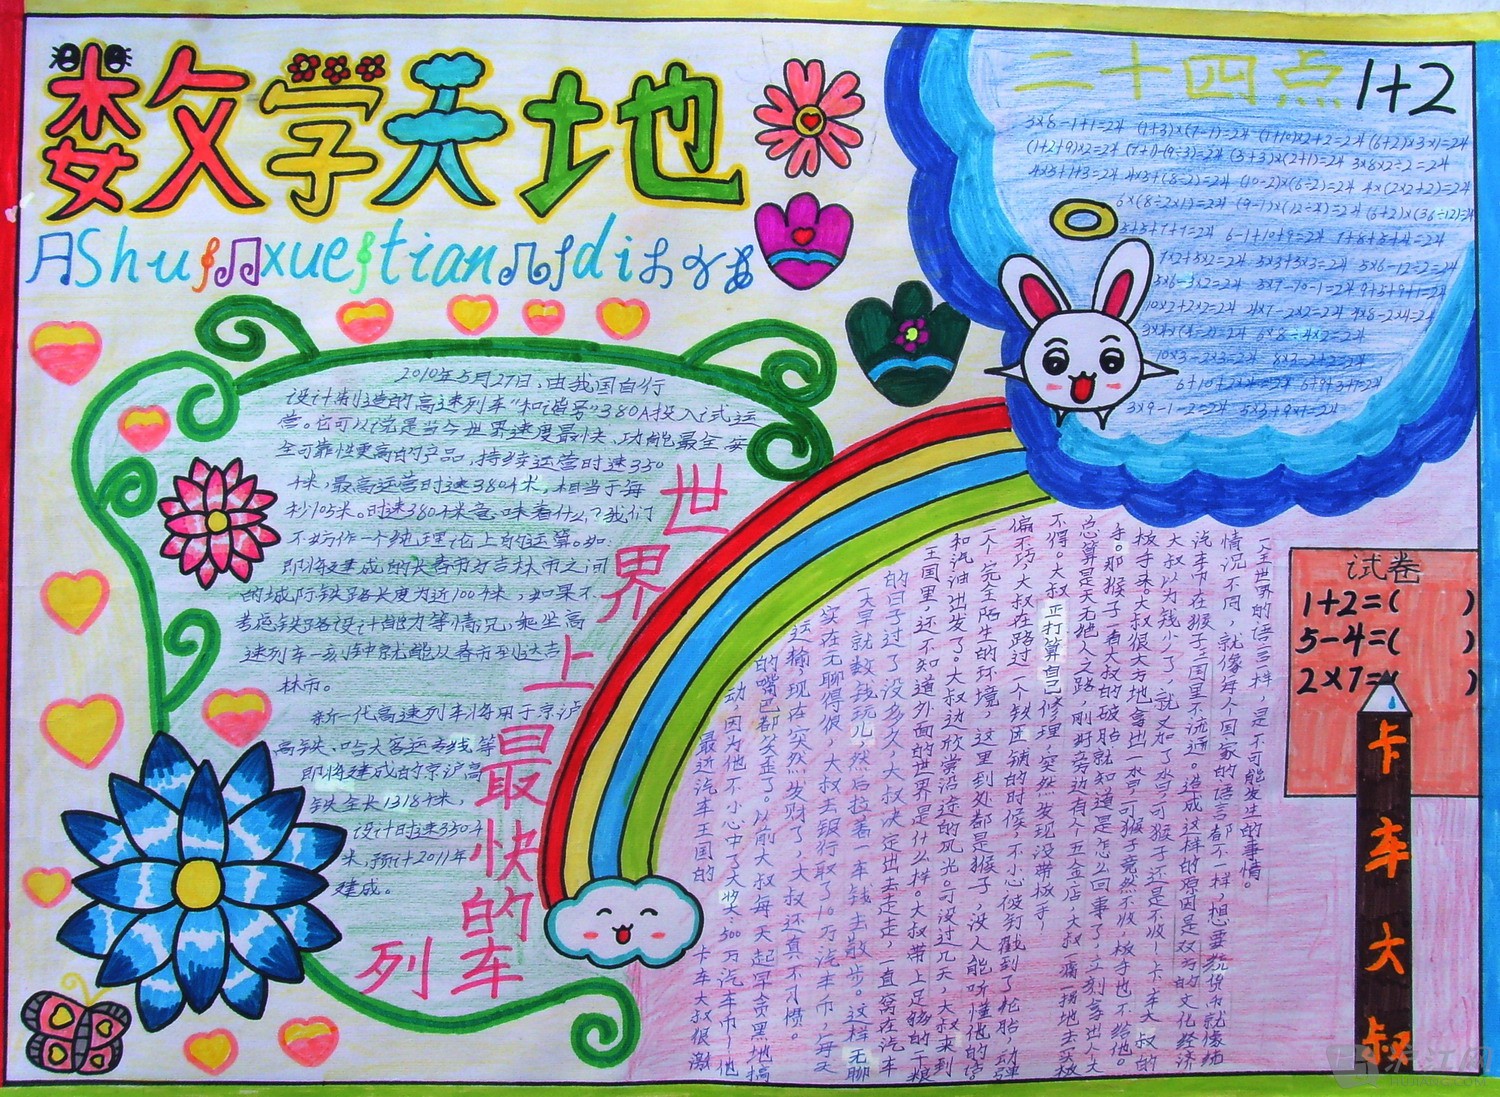 数学天地
shu xue tian di
二十四点 1+2
3×8-1+1=24 (1+3)×(7-1)=24 (1+10)×2+2=24 (6+2)×3×1=24
(1+2+9)×2=24 (7+1)-(9÷3)=24 (3+3)×(2+1)=24 3×8×2÷2=24
4×5+1+3=24 4×3+(8÷2)=24 (10-2)×(6÷2)=24 4×(2×2+2)=24
6×(8÷2×1)=24 (9-1)×(12÷4)=24 (6+2)×(36÷12)=24
6-1+10+9=24
7×2+5×2=24 5×3+3×3=24 5×6-12÷2=24
5×6-3×2=24 5×7-10-1=24 9+5+9+1=24
10×2+2×2=24 4×7-2×2=24 4×8-2×4=24
3×4×(4÷2)=24 6×8÷4×2=24
10×3-2×3=24
3×9-1-2=24 5×3+9×1=24
2010年5月27日,由我国自行
设计制造的高速列车“和谐号”380A投入试运
营。它可以说是当今世界速度最快、功能最全、安
全可靠性更高的产品,持续运营时速350
千米,最高运营时速380千米,相当于每
秒105米。时速380千米意味着什么?我们
不妨作一个纯理论上的运算。如
即将建成的长春市与吉林市之间
的城际铁路长度为近100千米,如果不
考虑铁路设计能力等情况,乘坐高
速列车一刻钟就能从春市到达吉
林市。
新一代高速列车将用于京沪
高铁、哈大客运专线等
即将建成的京沪高
铁全长1318千米,
设计时速350千
米,预计2011年
建成。
世界上最快的列车
试卷
1+2=( )
5-4=( )
2×7=( )
卡车大叔
卡车大叔很激
动,因为他不小心中了大奖:500万汽车币!他
的嘴巴都笑歪了。以前大叔每天起早贪黑地搞
运输,现在突然发财了,大叔还真不习惯。
实在无聊得很,大叔去银行取了10万汽车币,每天
一大早就数钱玩儿,然后拉着一车钱去散步。这样无聊
的日子过了没多久,大叔决定出去走走,一直窝在汽车
王国里,还不知道外面的世界是什么样。大叔带上足够的干粮
和汽油出发了。大叔边欣赏沿途的风光。可没过几天,大叔来到
一个完全陌生的环境,这里到处都是猴子,没人能听懂他的话。
偏不巧大叔在路过一个铁匠铺的时候,不小心被钉戳到了轮胎,动弹
不得。大叔正打算自己修理,突然发现没带板手,
总算是天无绝人之路,刚好旁边有个五金店,大叔一瘸一拐地去买板
手。那猴子一看大叔的破胎就知道是怎么回事了,立刻拿出一大
板手来。大叔很大方地拿出一水桶币,可猴子竟然不收,板手也不给他。
大叔以为钱少了,就又加了些,可猴子还是不收!卡车大叔的
汽车币在猴子王国里不流通。造成这样的原因是双方的文化经济
情况不同,就像每个国家的语言都不一样,想要货币就像统
一全世界的语言一样,是不可能发生的事情。
最近汽车王国的